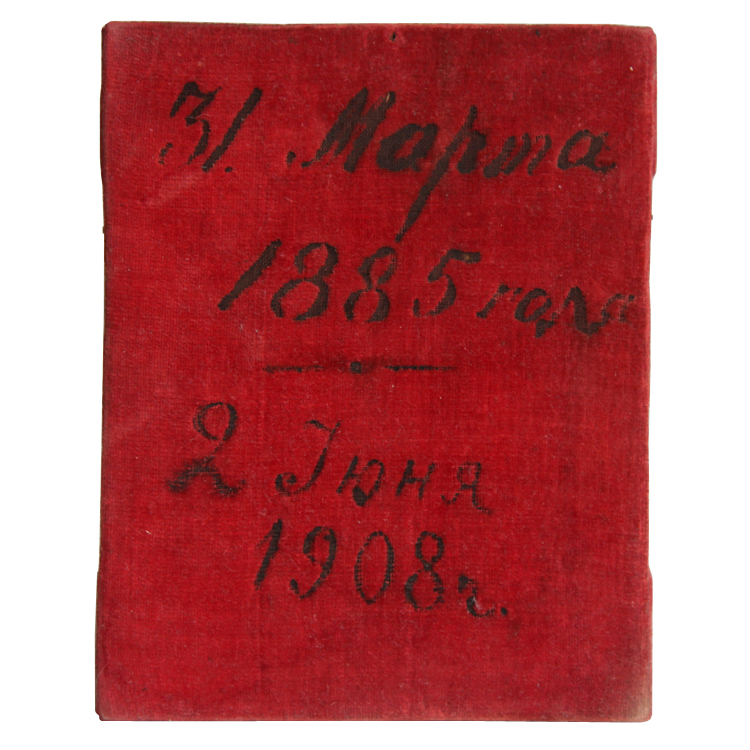 31. Марта
1885 года
2 Іюня
1908 г.